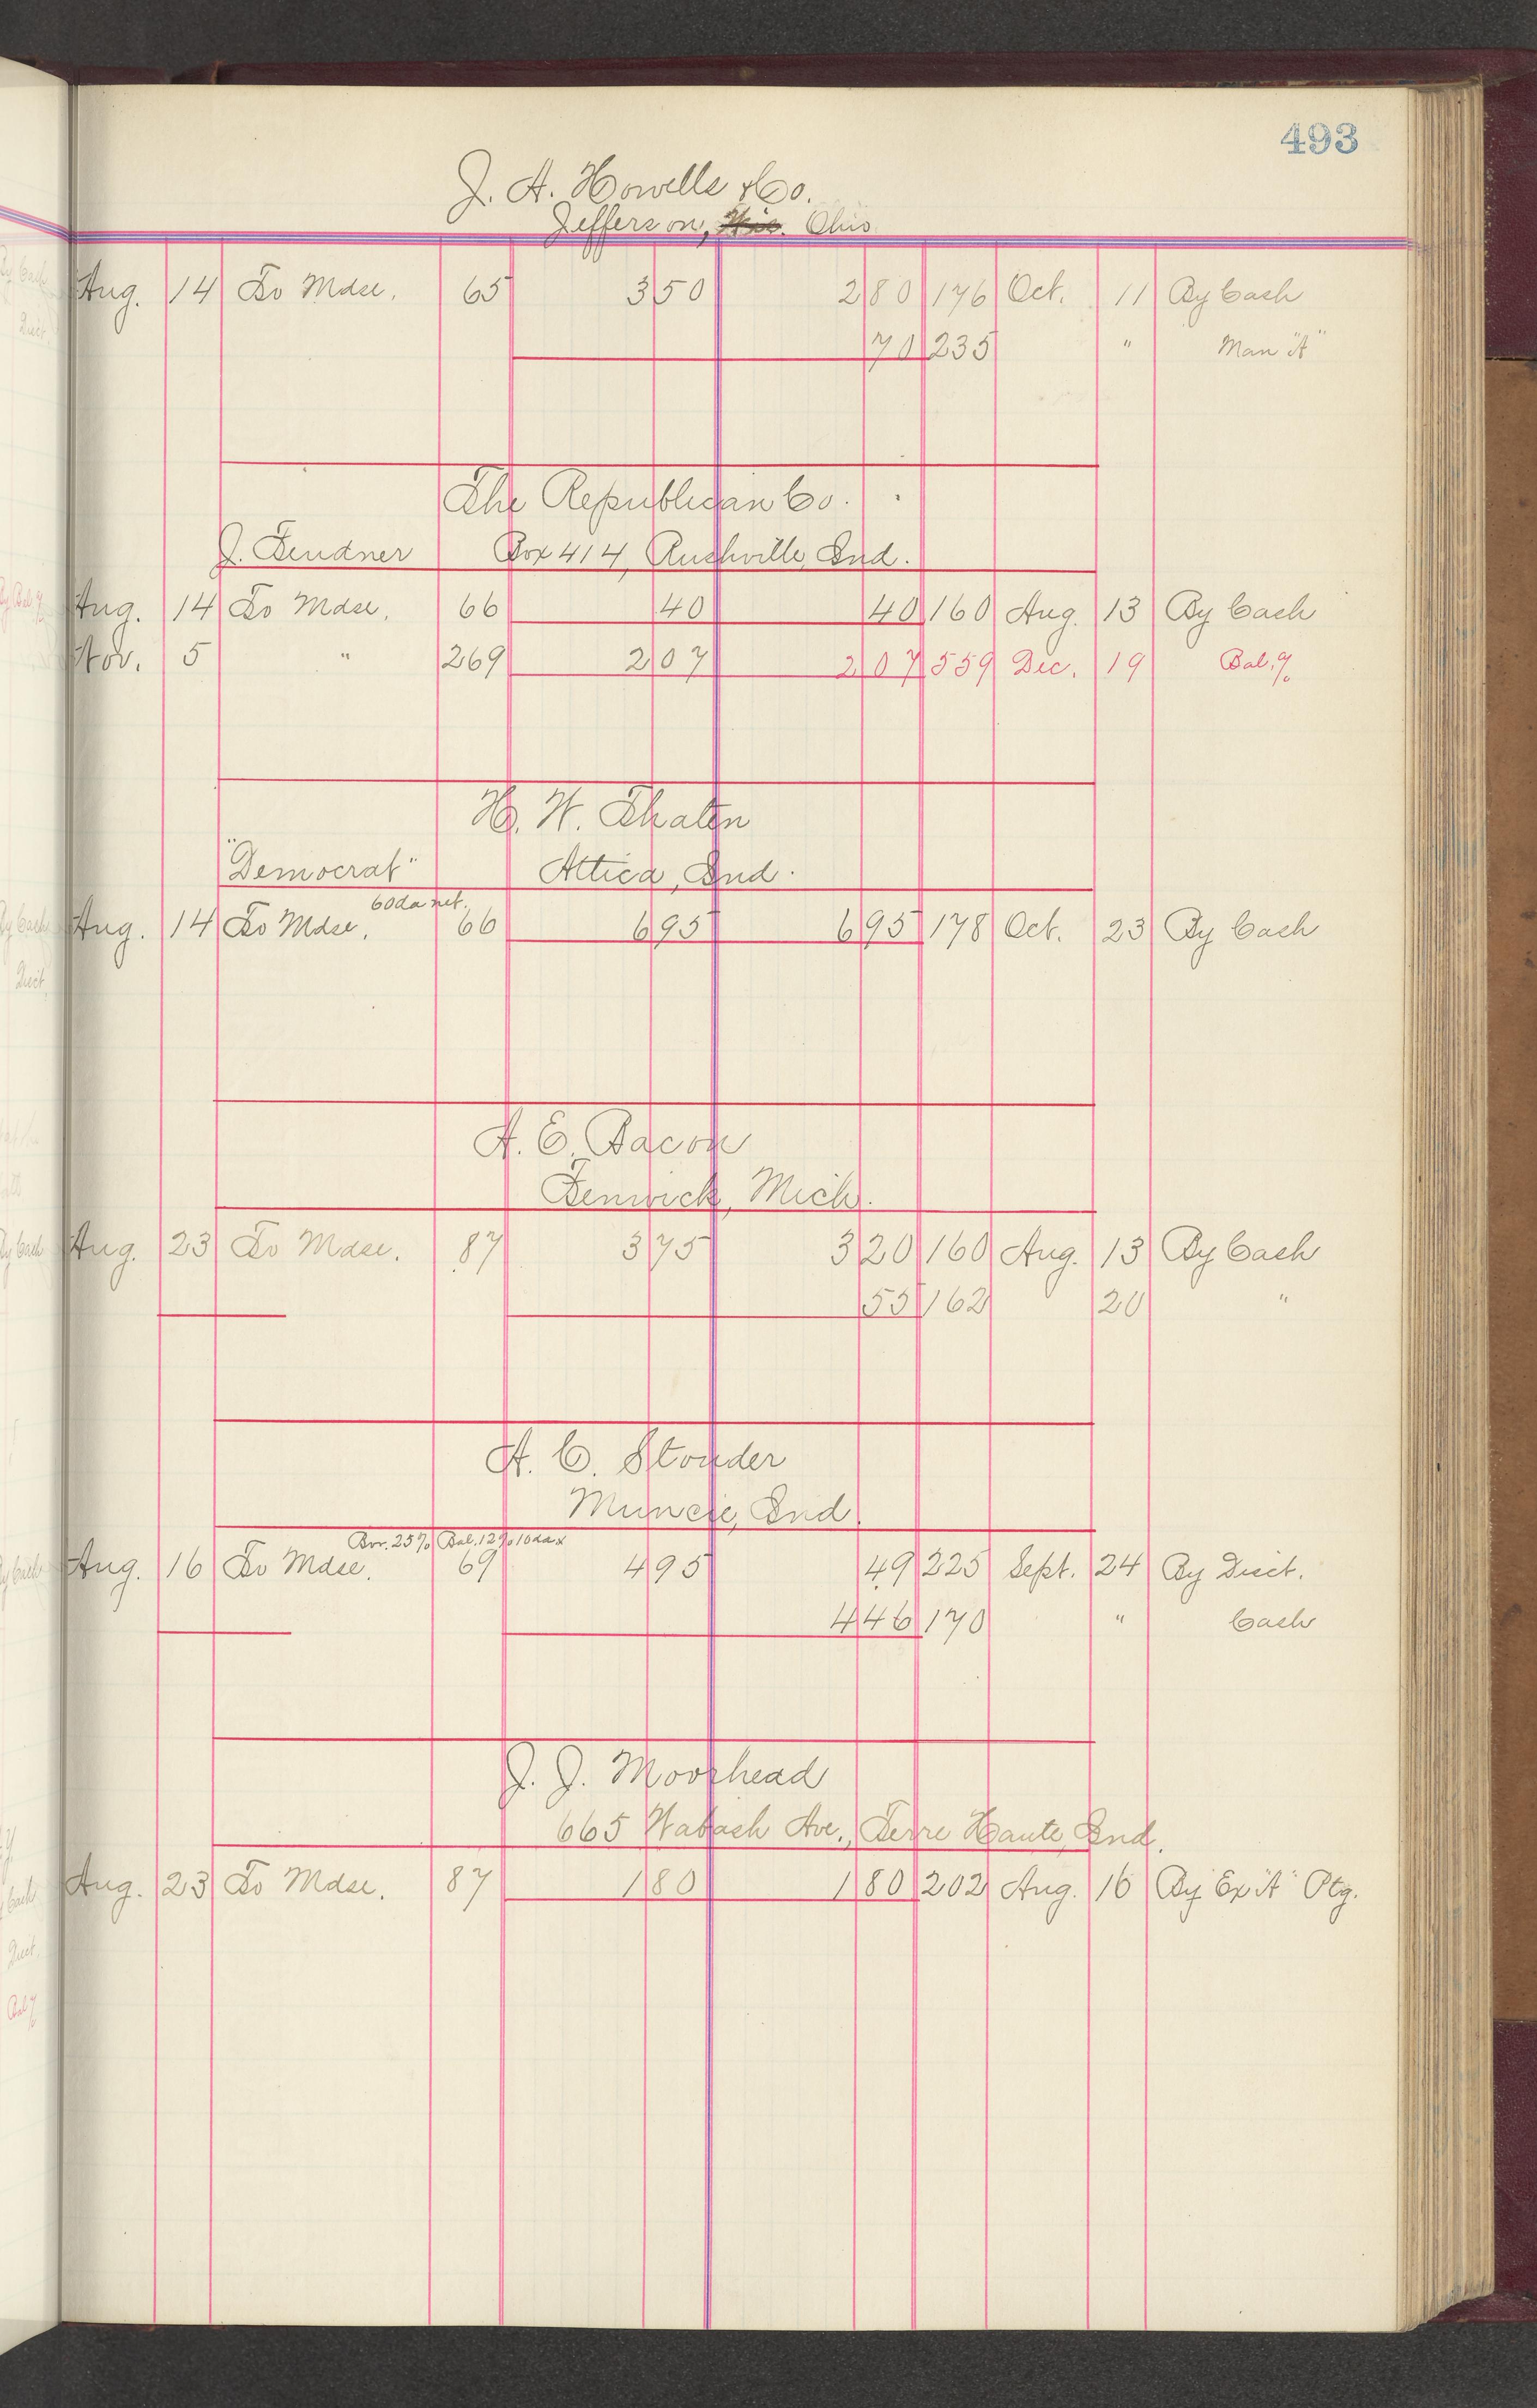 493
J. A. Howells & Co.
Jefferson, Wis. Ohio
Aug. 14 To Mdse. 65 3 50 2 80 176 Oct. 11 By Cash
70 235 " Man "A"
The Republican Co.
J. Feudner Box 414, Rushville, Ind.
Aug. 14 To Mdse. 66 40 40 160 Aug. 13 By Cash
Nov. 5 " 269 2 07 2 07 559 Dec. 19 Bal. %
H. W. Thaten
"Democrat" Attica, Ind.
60 da net.
Aug. 14 To Mdse. 66 6 95 6 95 178 Oct. 23 By Cash
A. E. Bacon
Fenwick, Mich.
Aug. 23 To Mdse. 87 3 75 3 20 160 Aug. 13 By Cash
55 162 20 "
A. C. Stouder
Muncie, Ind.
25% Bal. 12% 10 da x
Aug. 16 To Mdse. 69 4 95 49 225 Sept. 24 By Disct.
4 46 170 " Cash
J. J. Moorhead
665 Wabash Ave., Terre Haute, Ind.
Aug. 23 To Mdse. 87 1 80 1 80 202 Aug. 16 By Ex "A" Ptg.